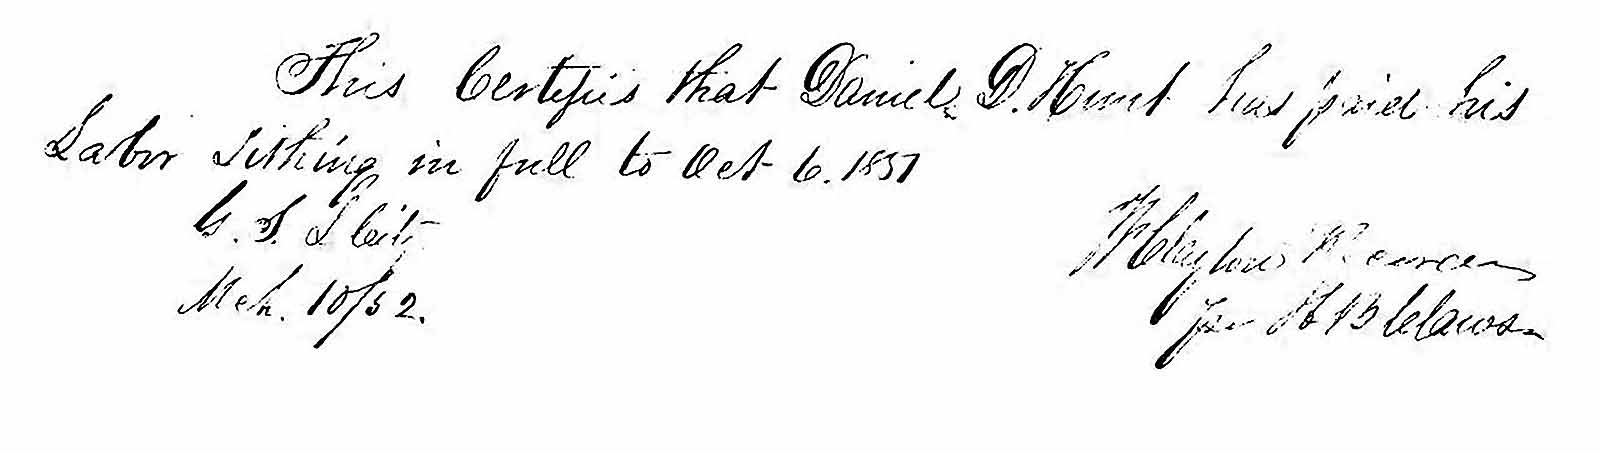 This Certifies that Daniel D. Hunt has paid his
Labor Tithing in full to Oct 6. 1851
G. S. L. City
Mch. 10/52.
per H B Clawson